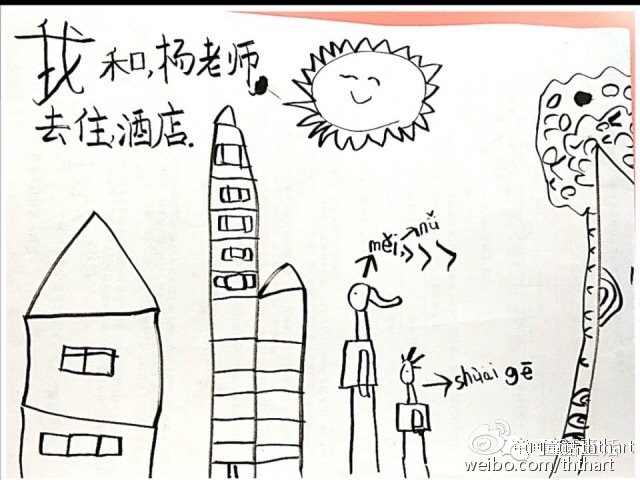 我和,杨老师
去住酒店.
měi nǚ
shuài gē
weibo.com/ththart